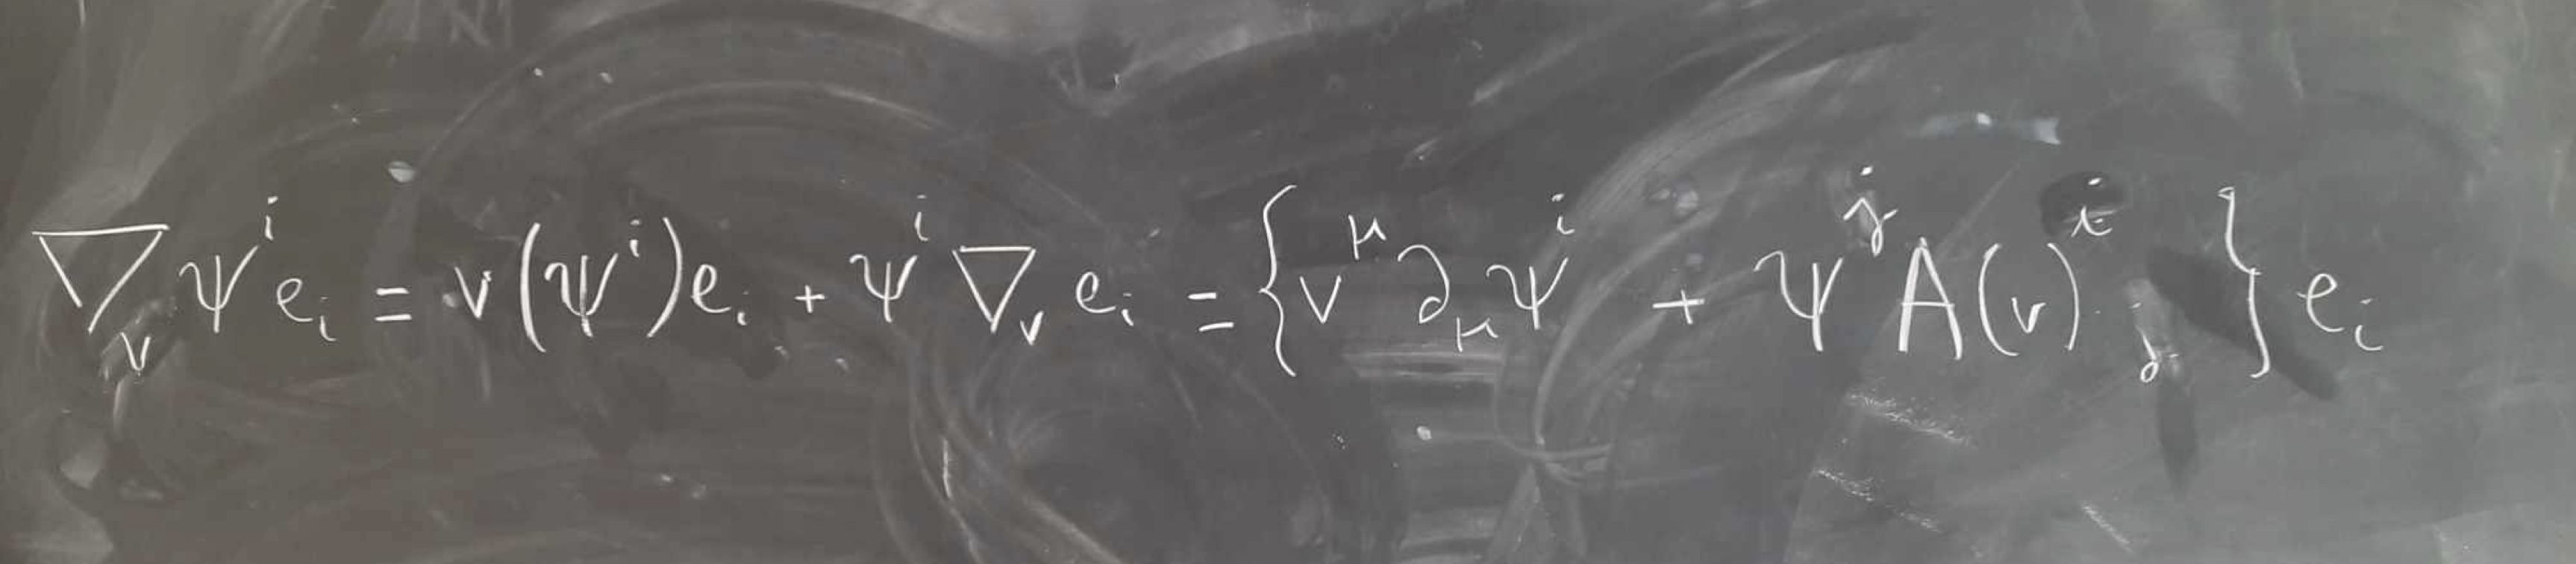 ∇_v ψ^i e_i = v(ψ^i)e_i + ψ^i ∇_v e_i = {v^μ ∂_μ ψ^i + ψ^j A(v)^i_j} e_i